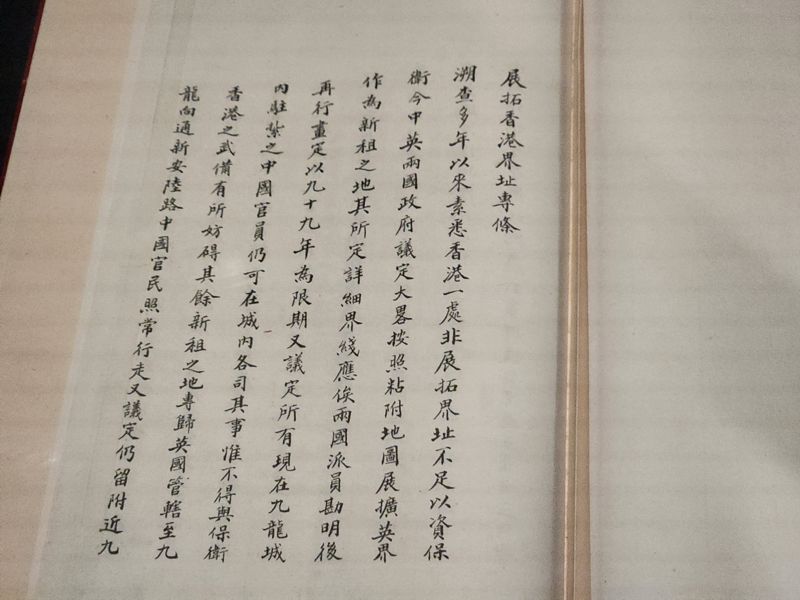 展拓香港界址專條
溯查多年以來素悉香港一處非展拓界址不足以資保
衛今中英兩國政府議定大畧按照粘附地圖展擴英界
作為新租之地其所定詳細界綫應俟兩國派員勘明後
再行畫定以九十九年為限期又議定所有現在九龍城
內駐紮之中國官員仍可在城內各司其事惟不得與保衛
香港之武備有所妨碍其餘新租之地專歸英國管轄至九
龍向通新安陸路中國官民照常行走又議定仍留附近九